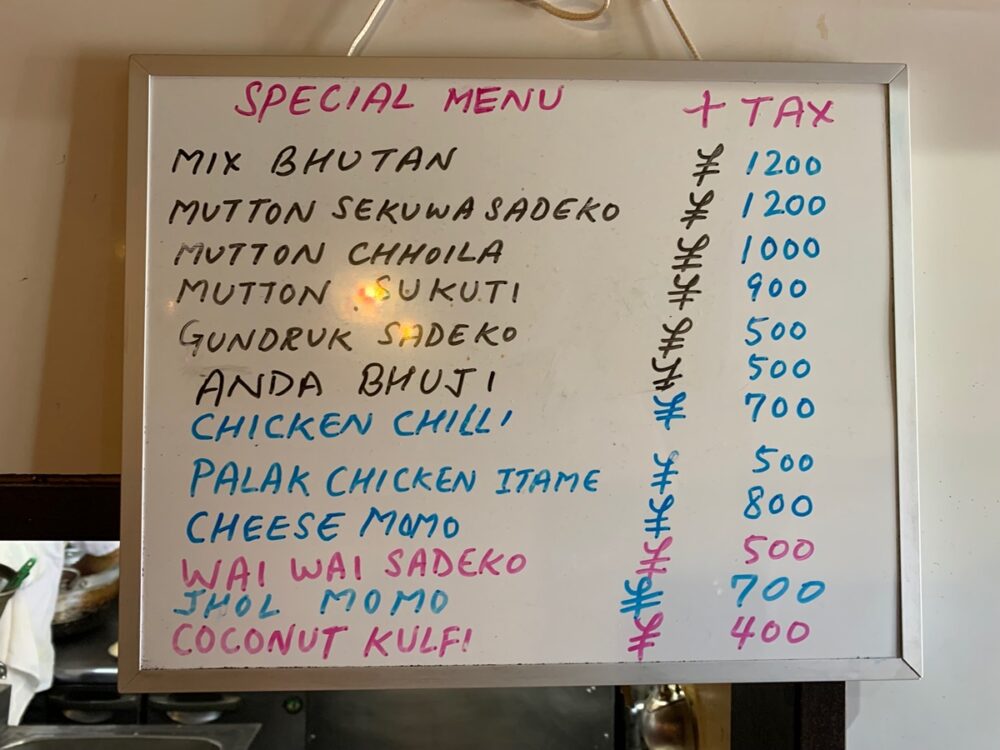 SPECIAL MENU + TAX
MIX BHUTAN ¥ 1200
MUTTON SEKUWA SADEKO ¥ 1200
MUTTON CHHOILA ¥ 1000
MUTTON SUKUTI ¥ 900
GUNDRUK SADEKO ¥ 500
ANDA BHUJI ¥ 500
CHICKEN CHILLI ¥ 700
PALAK CHICKEN ITAME ¥ 500
CHEESE MOMO ¥ 800
WAI WAI SADEKO ¥ 500
JHOL MOMO ¥ 700
COCONUT KULFI ¥ 400